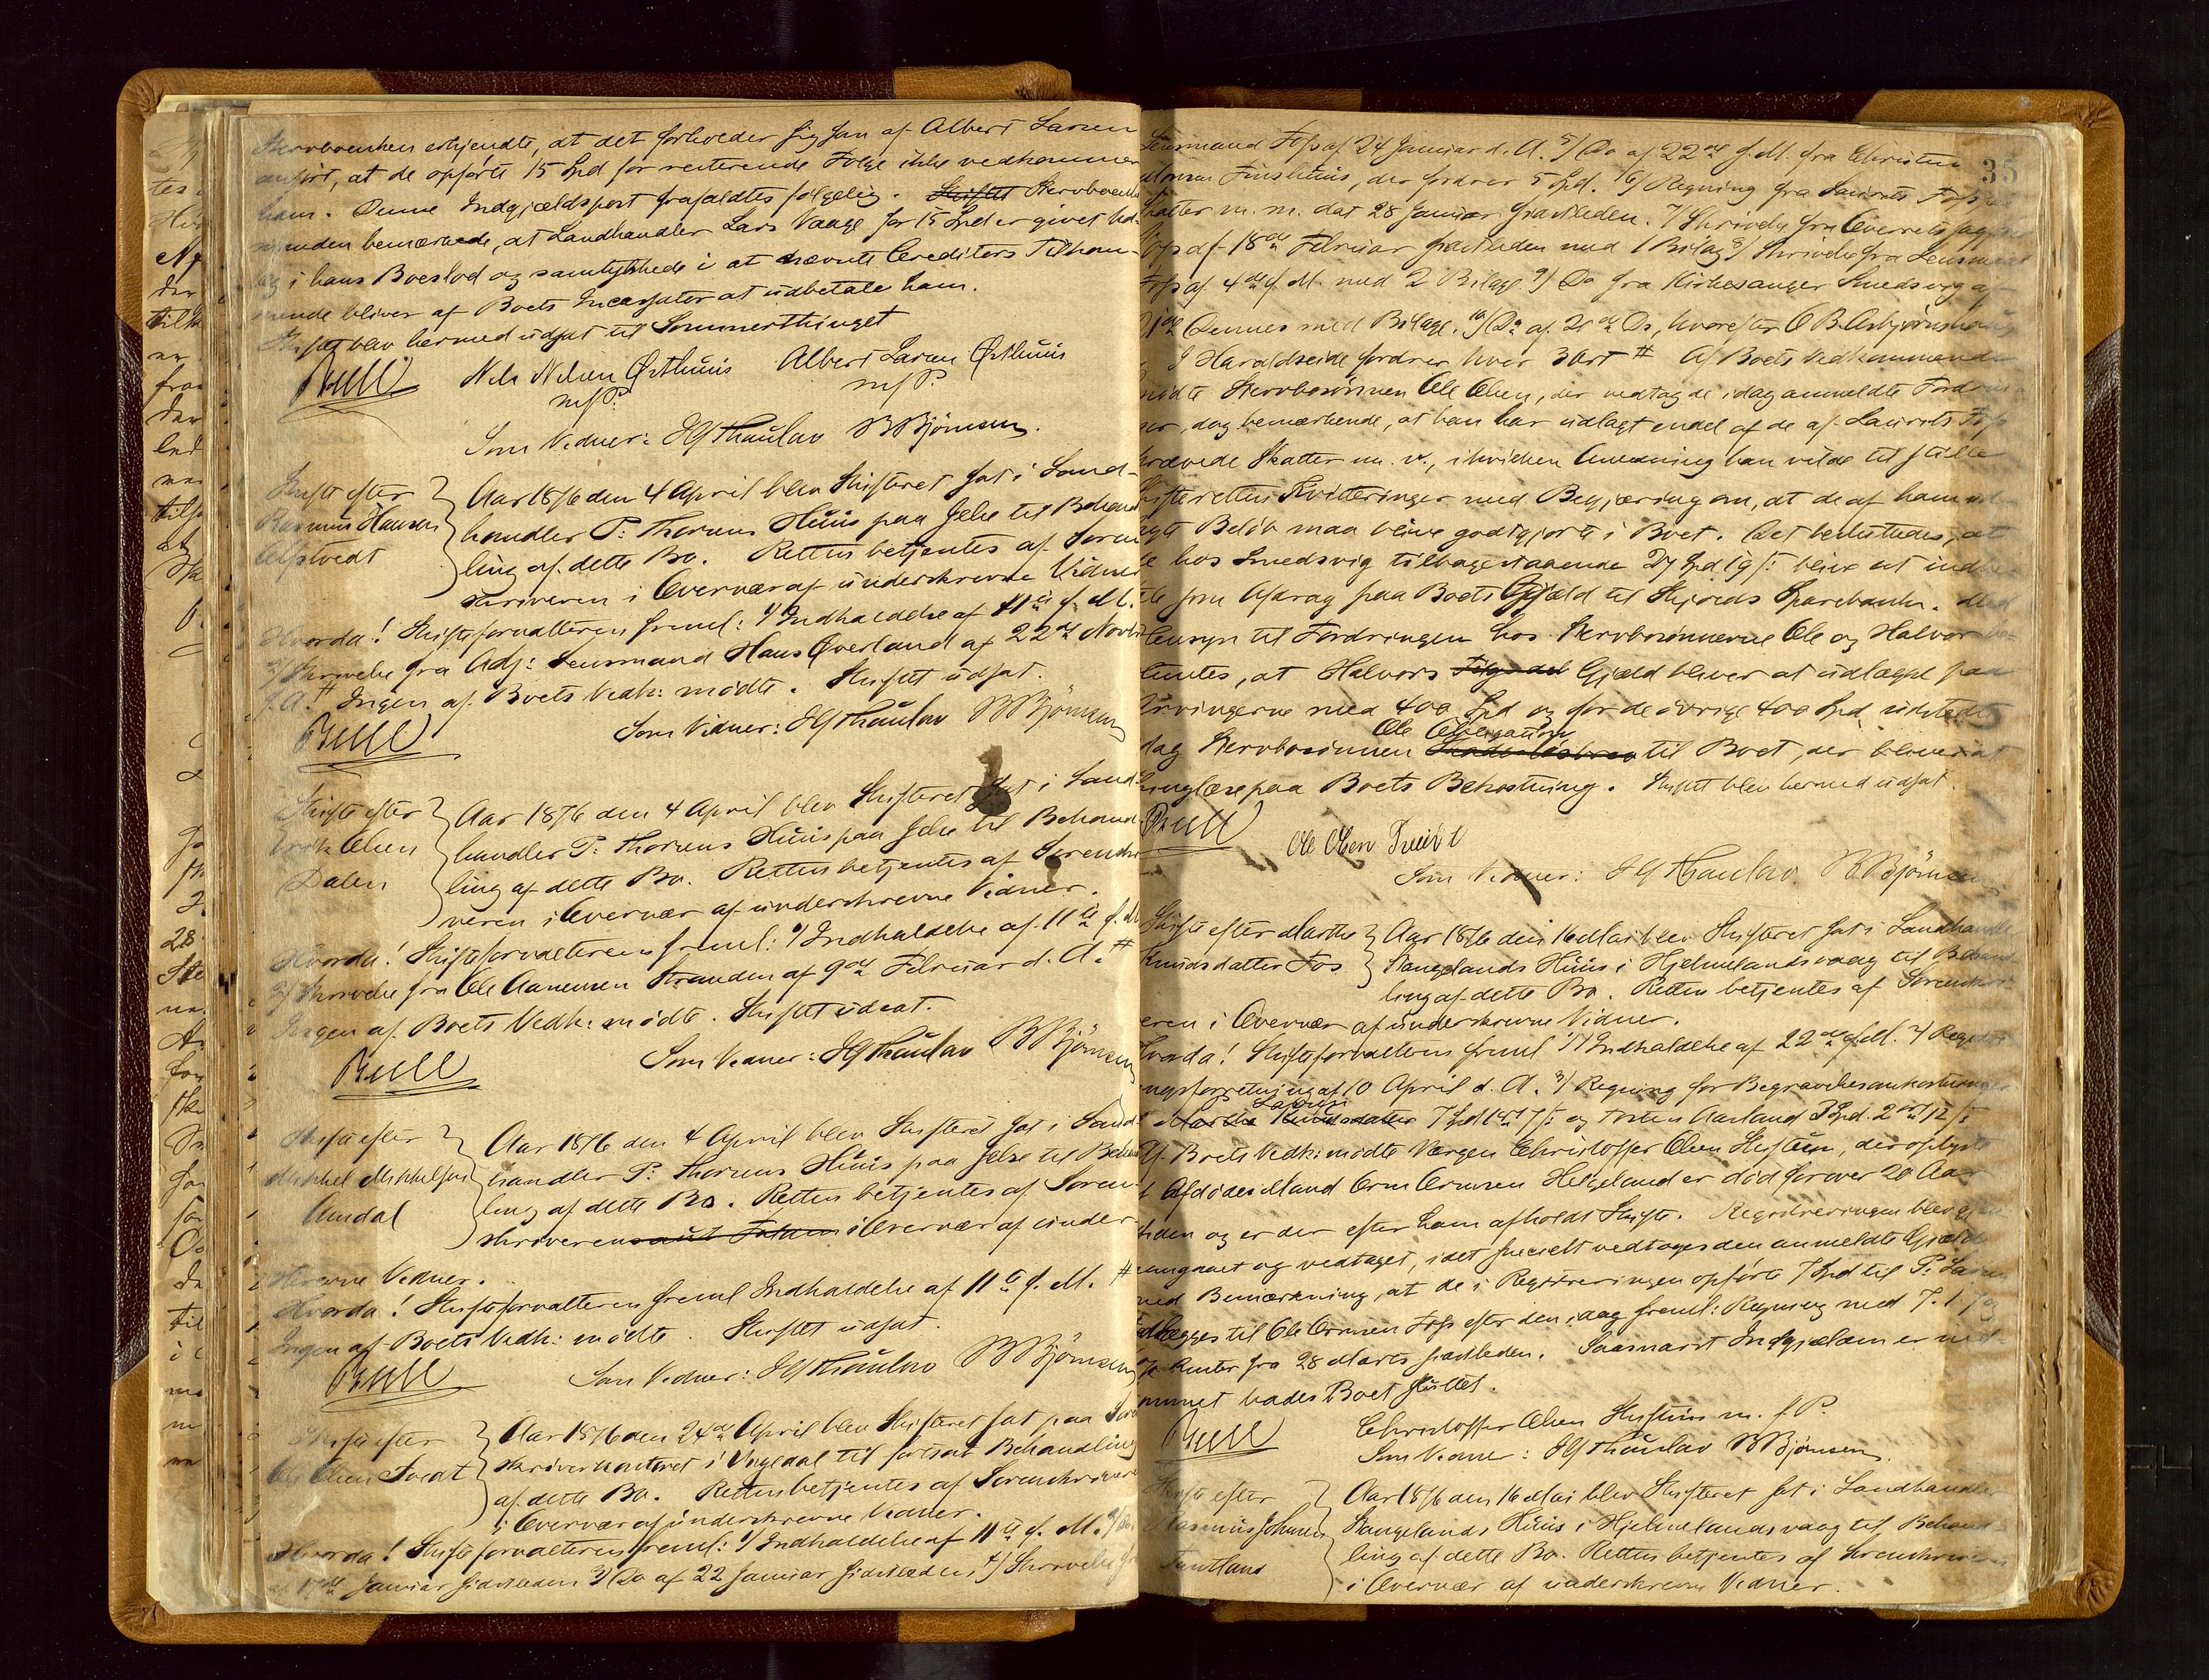 Stervboenken erkjendte, at det forholder sig som af Albert Larsen
anført, at de opførte 15 Spd for resterende Følge ikke vedkommer
ham. Denne Indgjældspost frafaldtes følgelig. Skiftet Stervboenke
manden bemærkede, at Landhandler Lars Vaage for 15 Spd er givet Ud-
læg i hans Boeslod og samtykkede i at nævnte Creditors Tilkom-
mende bliver af Boets Incassator at udbetale ham.
Skiftet blev hermed udsat til Sommerthinget
Bull Nels Nelsen Østhuus Albert Larsen Østhuus
m/P. m/P.
Som Vidner: HG Thaulav B Bjørnsen.
Skifte efter
Rasmus Hansen
Alfstvedt
Aar 1876 den 4 April blev Skifteret sat i Land-
handler P. Thorsens Huus paa Jelse til Behand-
ling af dette Bo. Retten betjentes af Soren-
skriveren i Overvær af underskrevne Vidner
Hvorda! Skifteforvalteren freml: 1/ Indkaldelse af 11te f. M.
2/ Skrivelse fra Adj: Lensmand Hans Øverland af 22de Novbr
f. A. # Ingen af Boets Vedk: mødte. Skiftet udsat.
Bull Som Vidner: HG Thaulav B Bjørnsen
Skifte efter
Erik Olsen
Dalen
Aar 1876 den 4 April blev Skifteret sat i Land-
handler P. Thorsens Huus paa Jelse til Behand-
ling af dette Bo. Retten betjentes af Sorenskri-
veren i Overvær af underskrevne Vidner.
Hvorda! Skifteforvalteren freml: 1/ Indkaldelse af 11te f. M
2/ Skrivelse fra Ole Aanensen Stranden af 9de Februar d. A. #
Ingen af Boets Vedk: mødte. Skiftet udsat.
Bull Som Vidner: HG Thaulav B Bjørnsen
Skifte efter
Mikkel Mikkelsen
Amdal
Aar 1876 den 4 April blev Skifteret sat i Land-
handler P. Thorsens Huus paa Jelse til Behand-
ling af dette Bo. Retten betjentes af Soren-
skriveren i Overvær af under-
skrevne Vidner.
Hvorda! Skifteforvalteren freml Indkaldelse af 11te f. M. #
Ingen af Boets Vedk: mødte. Skiftet udsat.
Bull Som Vidner: HG Thaulav B Bjørnsen
Skifte efter
Ole Olsen Tvedt
Aar 1876 den 24de April blev Skifteret sat paa Soren-
skriverkontoret i Vigedal til fortsat Behandling
af dette Bo. Retten betjentes af Sorenskriveren
i Overvær af underskrevne Vidner.
Hvorda! Skifteforvalteren freml: 1/ Indkaldelse af 11te f. M. 2/ Do
af 17de Januar sidstleden 3/ Do af 22 Januar sidstleden 4/ Skrivelse fra
35
Lensmand Foss af 24 Januar d. A. 5/ Do af 22de f. M. fra Christen
Finshuus, der fordrer 5 Spd. 6/ Regning fra Laurits Foss
Skatter m. m. dat 28 Januar sidstleden. 7/ Skrivelse fra
Foss af 18de Februar sidstleden med 1 Bilag 8/ Skrivelse fra Lensmand
Foss af 4de f. M. med 2 Bilage 9/ Do fra Kirkesanger Smedsvig af
Dennes med Bilage. 10/ Do af 20de Ds, hvorefter O B Asbjørnshaug
g I Haraldseide fordrer hver 3 Ort # Af Boets Vedkommende
mødte Stervbosønnen Ole Olsen, der vedtog de idag anmeldte Fordrin-
ger, dog bemærkende, at han har udlagt endel af de af Laurits Foss
krævede Skatter m. v., i hvilken Anledning han vilde til stille
Skifteretten Kvitteringer med Begjæring om, at de af ham ud-
lagte Beløb maa blive godtgjorte i Boet. Det besluttedes, at
de hos Smedsvig tilbagestaaende 27 Spd 19 s: blive at indbe-
tale som Afdrag paa Boets Gjæld til Skjolds Sparebank. Med
Hensyn til Fordringen hos Stervbosønnerne Ole og Halvor be-
sluttes, at Halvors Gjæld bliver at udlægge paa
Arvingerne med 400 Spd og for de øvrige 400 Spd udstedte
Ole Obligation
idag Stervbosønnen til Boet, der bliver at
thinglæse paa Boets Bekostning. Skiftet blev hermed udsat.
Bull Ole Olsen Tveidt
Som Vidner: HG Thaulav. B Bjørnsen
Skifte efter Marthe
Knudsdatter Fos
Aar 1876 den 16 Mai blev Skifteret sat i Landhandler
Stangelands Huus i Hjelmelandsvaag til Behand-
ling af dette Bo. Retten betjentes af Sorenskri-
veren i Overvær af underskrevne Vidner.
Hvorda! Skifteforvalteren freml 1/ Indkaldelse af 22de f. M. 2/ Registre-
ringsforretning af 10 April d. A. 3/ Regning for Begravelsesomkostninger
Marthe Knudsdatter 7 Spd 1 ort 7 s: og Torsten Aarland 3 Spd. 2 ort 12 s:
Af Boets Vedk: mødte Værgen Christoffer Olsen Hustuun, der oplyste
at Afdødes Mand Orm Ormsen Helgeland er død for over 20 Aar
siden og er der efter ham afholdt Skifte. Registreringen blev gjen-
nemgaaet og vedtaget, idet specielt vedtoges den anmeldte Gjæld
med Bemærkning, at de i Registreringen opførte 7 Spd til P. Larsen
udlægges til Ole Ormsen Foss efter den idag freml: Regning med 7. 1. 7 og
Renter fra 28 Marts sidstleden. Saasnart Indgjælden er ind-
kommet kades Boet sluttet.
Bull Christoffer Olsen Hustuun m. f. P.
Som Vidner: HG Thaulav B Bjørnsen.
Skifte efter
Rasmus Johnsen
Tandtland
Aar 1876 den 16 Mai blev Skifteret sat i Landhandler
Stangelands Huus i Hjelmelandsvaag til Behand-
ling af dette Bo. Retten betjentes af Sorenskriveren
i Overvær af underskrevne Vidner.